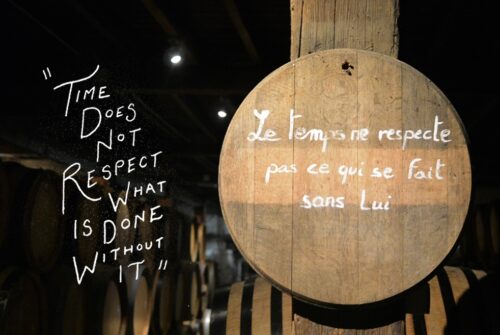 "TIME
DOES
NOT
RESPECT
WHAT
IS DONE
WITHOUT
IT"
Le temps ne respecte
pas ce qui se fait
sans Lui